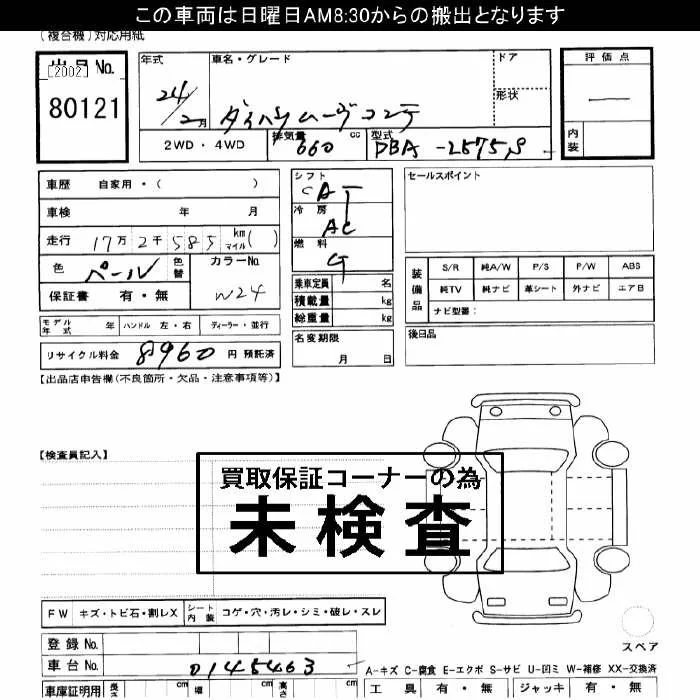 この車両は日曜日AM8:30からの搬出となります
(複合機)対応用紙
出品No.
[2002]
80121
年式 車名・グレード ドア
24/2月 ダイハツムーヴコンテ 形状
評価点
―
内装
2WD・4WD 排気量 660 cc 型式 DBA-L575S
車歴 自家用・( )
車検 年 月
走行 17万2千585 km マイル( )
色 パール 色替 カラーNo. W24
保証書 有・無
シフト CAT
冷房 AC
燃料 G
乗車定員 名
積載量 kg
総重量 kg
セールスポイント
装備品 S/R 純A/W P/S P/W ABS
純TV 純ナビ 革シート 外ナビ エアB
ナビ型番:
モデル年式 年 ハンドル 左・右 ディーラー・並行
リサイクル料金 8960 円 預託済
名変期限
月 日
後日品
【出品店申告欄(不良箇所・欠品・注意事項等)】
【検査員記入】
買取保証コーナーの為
未検査
FW キズ・トビ石・割レX シート内装 コゲ・穴・汚レ・シミ・破レ・スレ
登録No.
車台No. 0145463
スペア
A-キズ C-腐食 E-エクボ S-サビ U-凹ミ W-補修 XX-交換済
車庫証明用 長さ cm 幅 cm 高さ cm
工具 有・無 ジャッキ 有・無